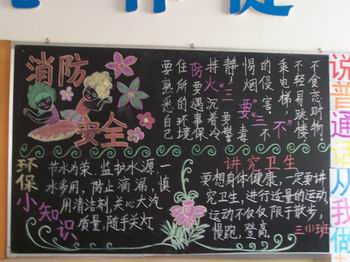 消防
安全
防火"三要""三不"
要熟悉自己
住所的环境
要遇事保
持沉着冷
静；三要警
惕烟毒
的侵害。不
乘电梯，
不轻易跳楼
不贪恋财物。
环保
小知识
节水为荣、监护水源，一
水多用，防止滴漏，慎
用清洁剂，关心大汽
质量，随手关灯
讲究卫生
要想身体健康，一定要讲
究卫生，进行适量的运动，
运动不仅仅限于散步，
慢跑，登高。
班
说普通话从我做